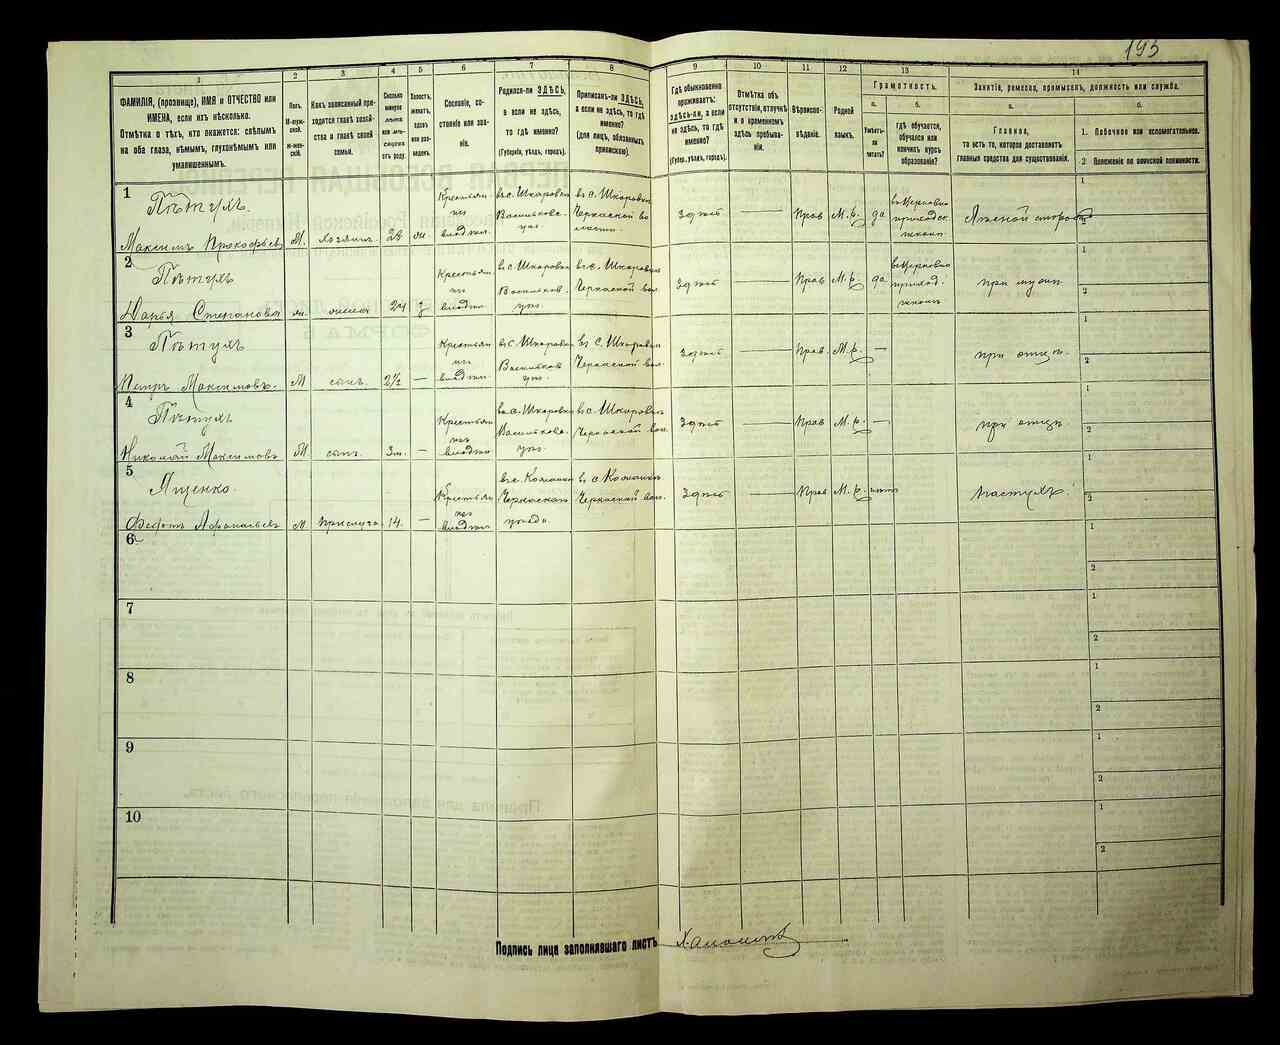 195
1
2
3
4
5
6
7
8
9
10
11
12
13
14
ФАМИЛІЯ, (прозвище), ИМЯ и ОТЧЕСТВО или
ИМЕНА, если ихъ нѣсколько.
Отмѣтка о тѣхъ, кто окажется: слѣпымъ
на оба глаза, нѣмымъ, глухонѣмымъ или
умалишеннымъ.
Полъ.
М-мужской.
Ж-женскій.
Какъ записанный приходится
главѣ хозяйства
и главѣ своей
семьи.
Сколько
минуло
лѣтъ
или мѣсяцевъ
отъ роду.
Холостъ,
женатъ,
вдовъ
или разведенъ.
Сословіе, состояніе
или званіе.
Родился-ли ЗДѢСЬ,
а если не здѣсь,
то гдѣ именно?
(Губернія, уѣздъ, городъ).
Приписанъ-ли ЗДѢСЬ,
а если не здѣсь, то гдѣ
именно?
(для лицъ, обязанныхъ
припискою).
Гдѣ обыкновенно
проживаетъ:
здѣсь-ли, а если
не здѣсь, то гдѣ
именно?
(Губер., уѣздъ, городъ).
Отмѣтка объ
отсутствіи, отлучкѣ
и о временномъ
здѣсь пребываніи.
Вѣроисповѣданіе.
Родной
языкъ.
Грамотность.
а.
Умѣетъ-ли
читать?
б.
гдѣ обучается,
обучался или
кончилъ курсъ
образованія?
Занятіе, ремесло, промыселъ, должность или служба.
а.
Главное,
то есть то, которое доставляетъ
главныя средства для существованія.
б.
1. Побочное или вспомогательное.
2 Положеніе по воинской повинности.
1
Пѣтухъ.
Максимъ Прокофьевъ
М.
хозяинъ
28
ж.
Крестьянинъ
владѣл.
въ с. Шкаровкѣ
Васильков.
уѣз.
въ с. Шкаровкѣ
волости.
Здѣсь
Прав
М.р.
да
въ Церковно
приходск.
школѣ
1
2
2
Пѣтухъ
Дарья Степановна
ж.
жена
24
з
Крестьян
владѣл.
въ с. Шкаровкѣ
Васильков.
уѣз.
въ с. Шкаровкѣ
вол.
Здѣсь
Прав
М.р.
да
въ Церковно
приход.
школѣ
при мужѣ
1
2
3
Пѣтухъ
Петръ Максимовъ.
М
сынъ.
2½
—
Крестьян
владѣл.
въ с. Шкаровкѣ
Васильков
уѣз.
въ с. Шкаровкѣ
вол.
Здѣсь
Прав.
М.р.
—
при отцѣ.
1
2
4
Пѣтухъ
Николай Максимовъ
М
сынъ.
3м.
—
Крестьян
владѣл.
въ с. Шкаровкѣ
Васильков.
уѣз.
въ с. Шкаровкѣ
вол.
Здѣсь
Прав
М.р.
—
при отцѣ.
1
2
5
Яценко.
Федотъ Афанасьевъ
м
прислуга
14.
—
Крестьян
владѣл
уѣзда.
вол.
Здѣсь
Прав
М.р.
нѣтъ
Пастухъ
1
2
6
1
2
7
1
2
8
1
2
9
1
2
10
1
2
Подпись лица заполнявшаго листъ